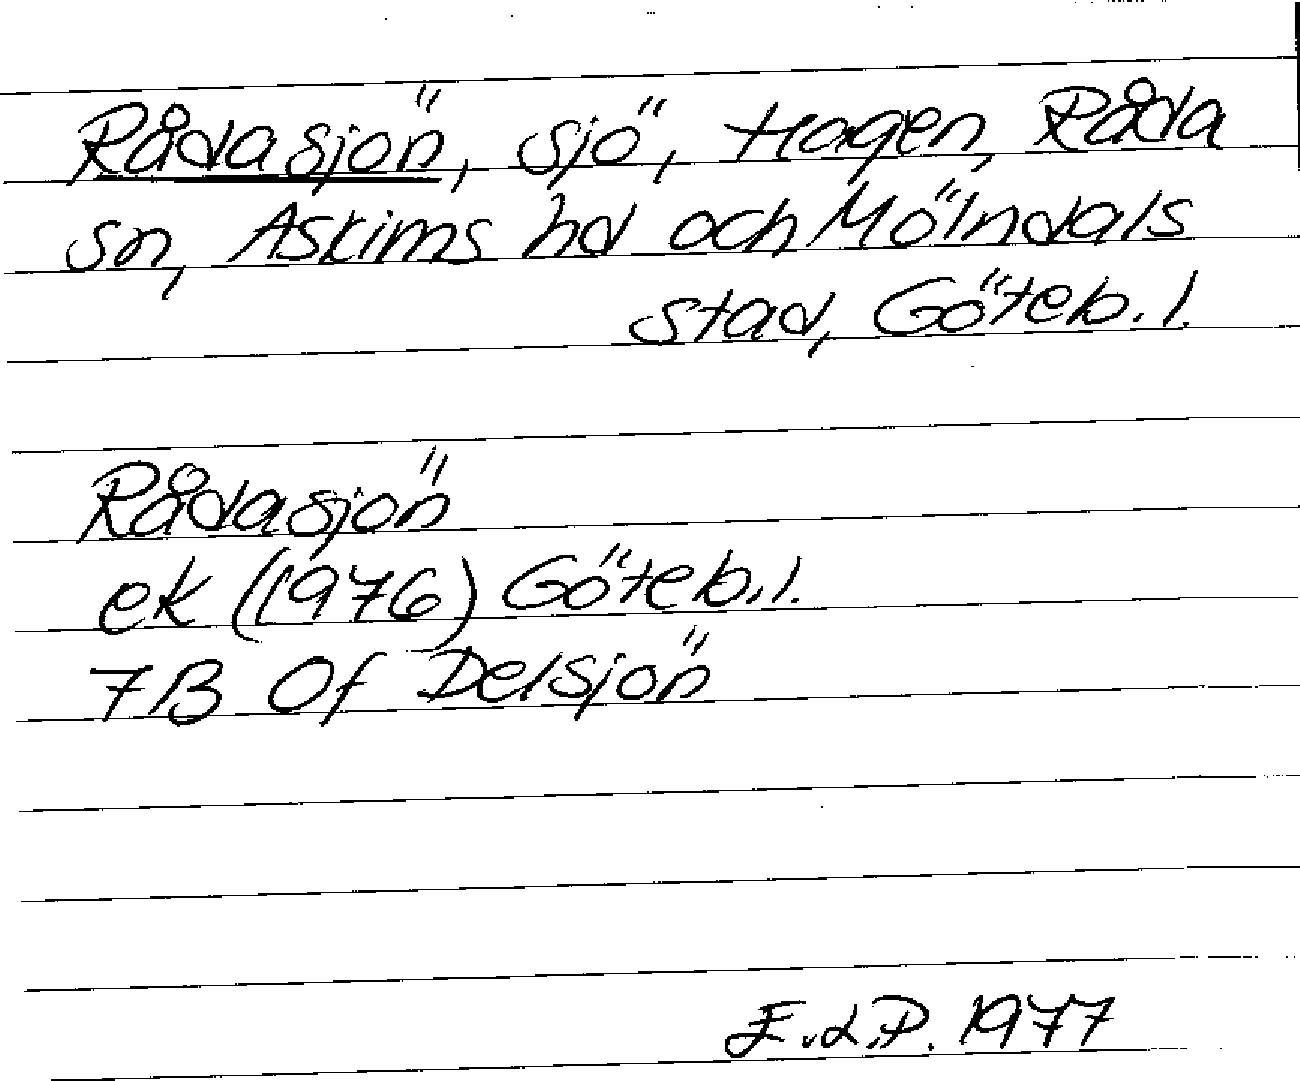 Rådasjön, sjö, Hagen, Råda
sn, Askims hd och Mölndals
stad, Göteb. l.
Rådasjön
ek (1976) Göteb. l.
7B 0f Delsjön
E.d.P. 1977